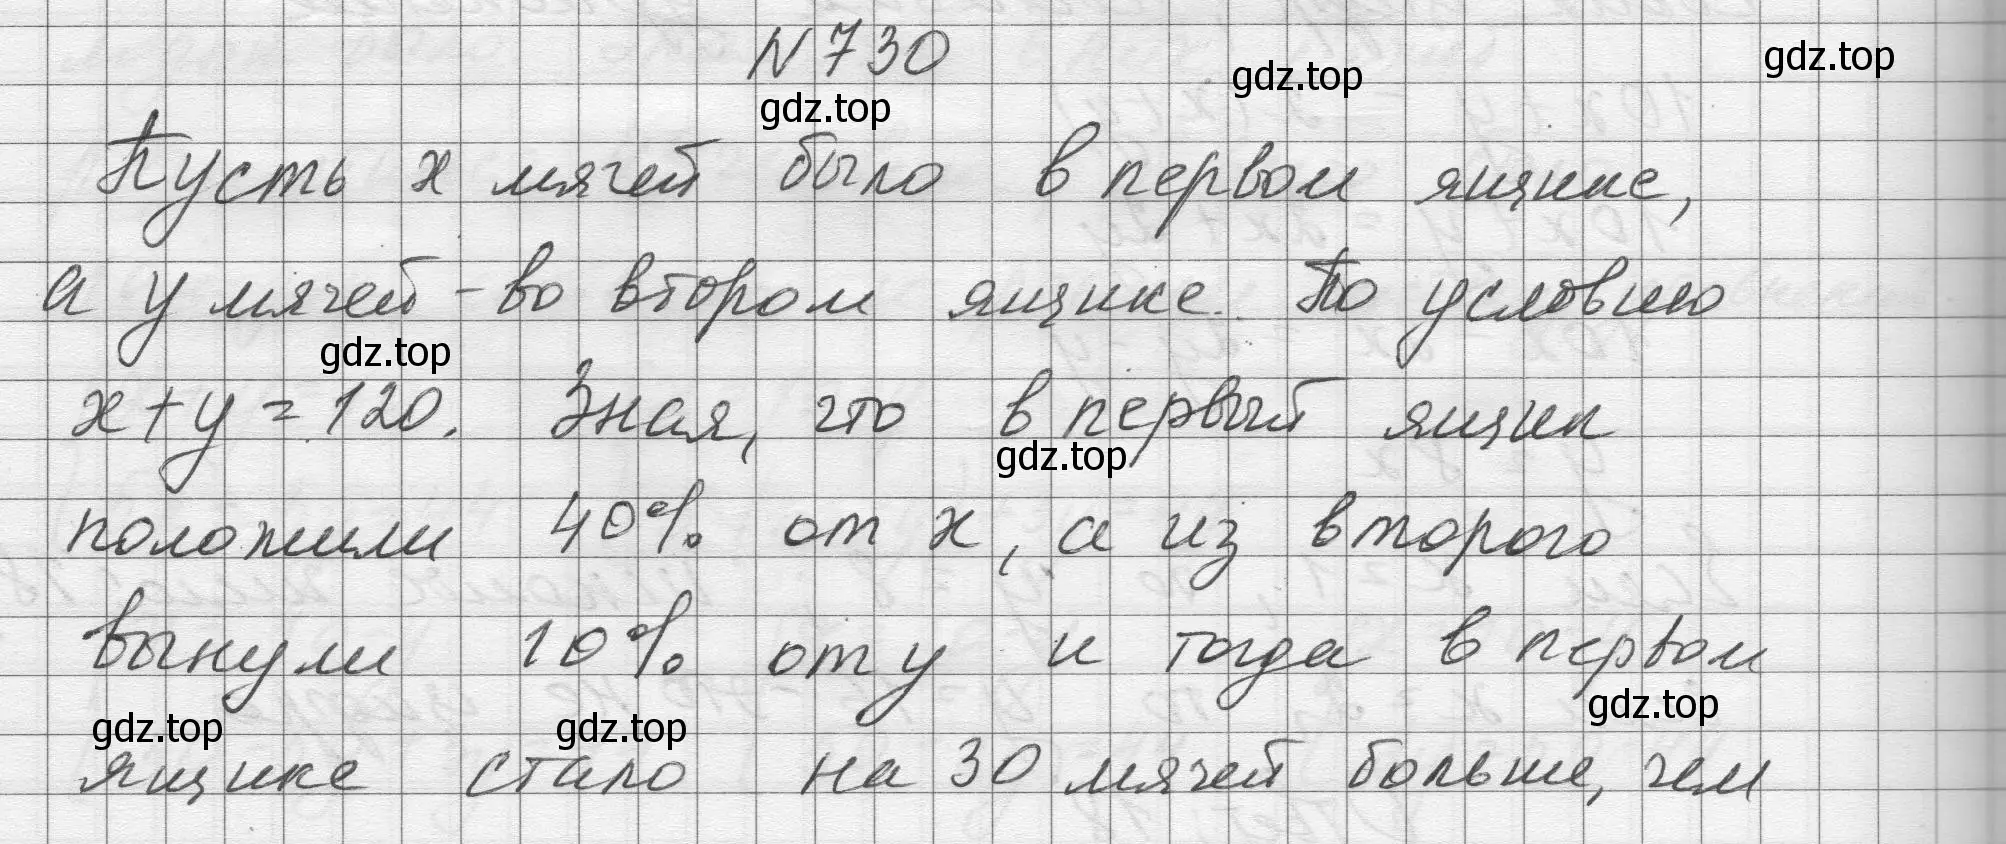 N 730
gdz.top
gdz.top
gdz.top
Пусть x мячей было в первом ящике,
а y мячей - во втором ящике. По условию
gdz.top
x + y = 120. Зная, что в первый ящик
gdz.top
положили 40% от x, а из второго
вынули 10% от y и тогда в первом
gdz.top
gdz.top
gdz.top
ящике стало на 30 мячей больше, чем